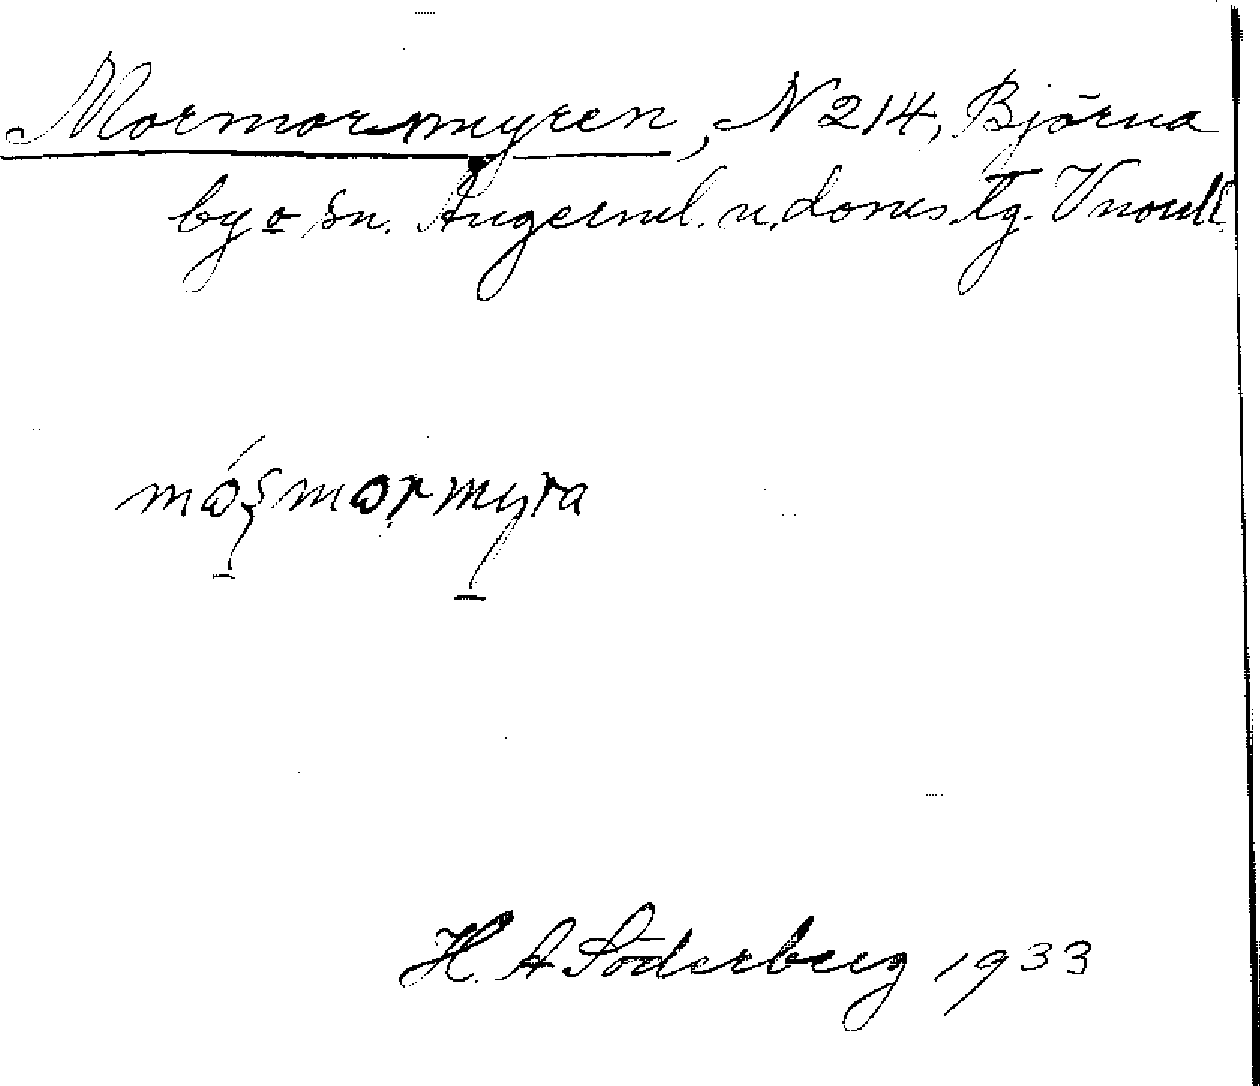 Mormormyren, N 214, Björna
by o sn. Ångerml. n. doms. tg. Vnorrl.
mósmormyra
H. A Söderberg 1933